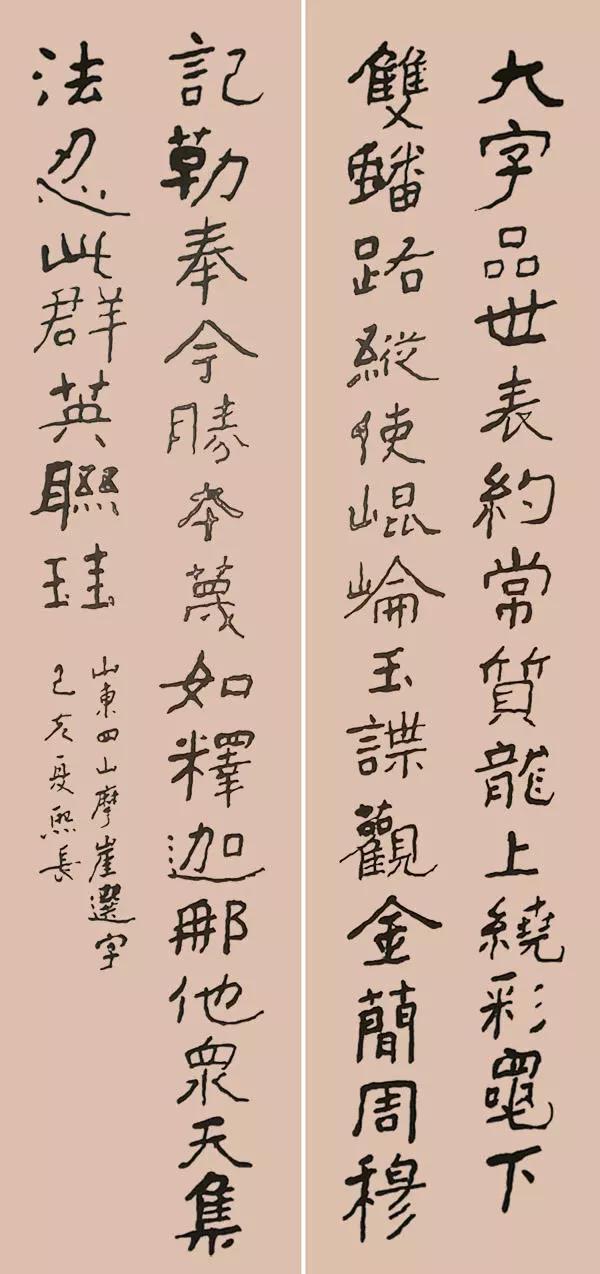 大字品世表約常質龍上繞彩下
雙蟠路縱使崐崘玉諜觀金簡周穆
記勒奉今勝夲蔑如釋迦那他衆天集
法忍此群英聯珪
山東四山摩崖選字
己亥夏熙長